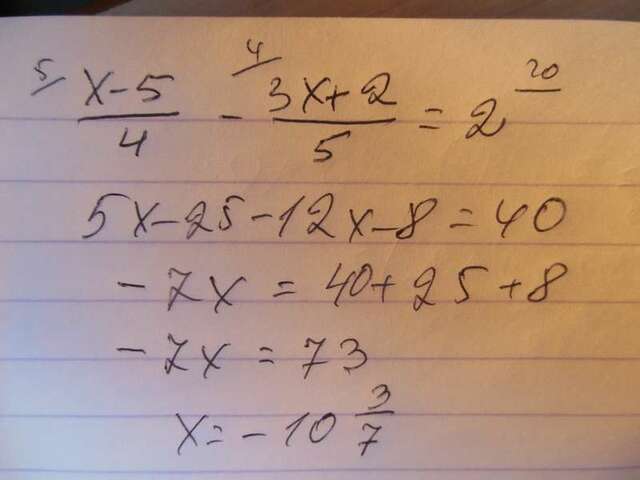 5/ (x-5)/4 - 4/ (3x+2)/5 = 2 20/
5x-25-12x-8=40
-7x = 40+25+8
-7x = 73
x=-10 3/7